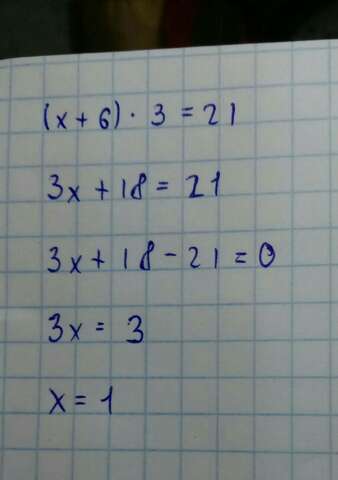 (x + 6) · 3 = 21
3x + 18 = 21
3x + 18 - 21 = 0
3x = 3
x = 1